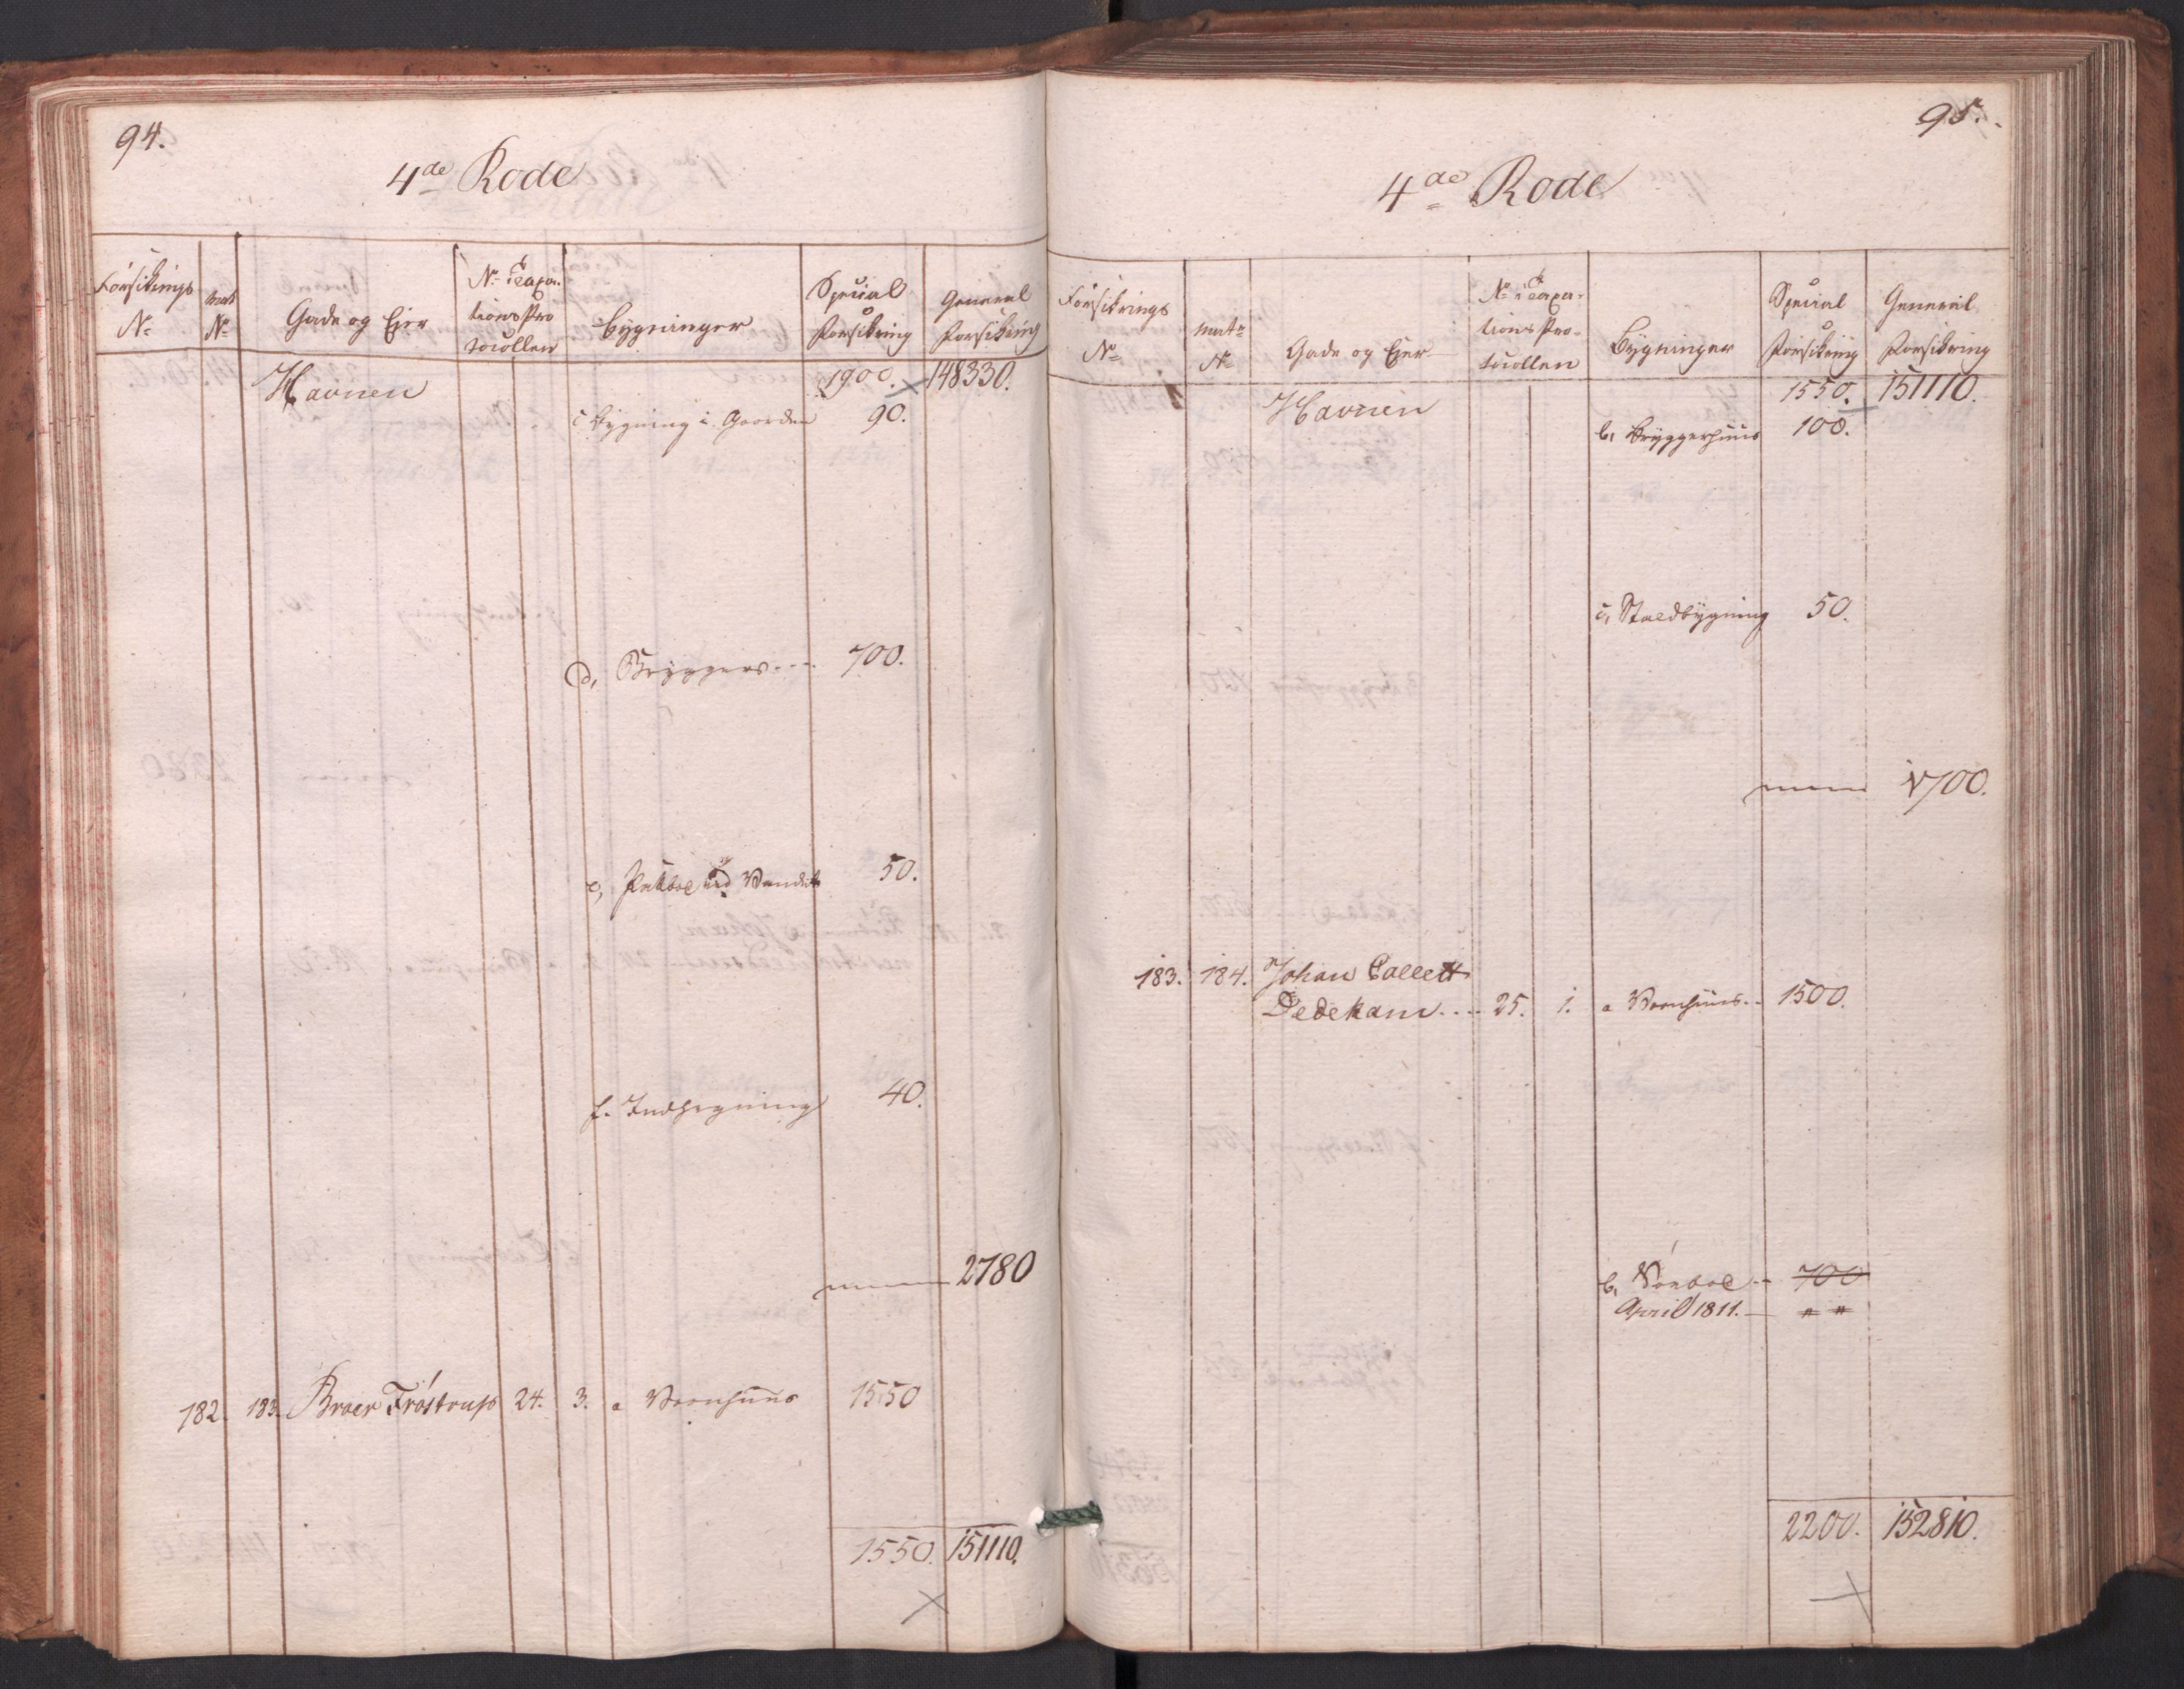 94.
4de Rode
Forsikrings No
Mat No
Gade og Ejer
No i Taxations Protocollen
Bygninger
Special Forsikring
General Forsikring
Havnen 1900. 148330.
c Bygning i Gaarden 90.
d, Bryggers 700.
e, Pakboe ved Vandet 50.
f. Indhegning 40.
2780
182. 183. Broer Fröstrup 24. 3. a Vaanhuus 1550
1550. 151110.
95.
4de Rode
Forsikrings No
Mat No
Gade og Ejer
No i Taxations Protocollen
Bygninger
Special Forsikring
General Forsikring
Havnen 1550. 151110.
b, Bryggerhuus 100.
c, Staldbygning 50.
1700.
183. 184. Johan Callett
Dedekam 25. 1. a Vaanhuus 1500.
b, Söeboe 700
April 1811. " "
2200. 152810.